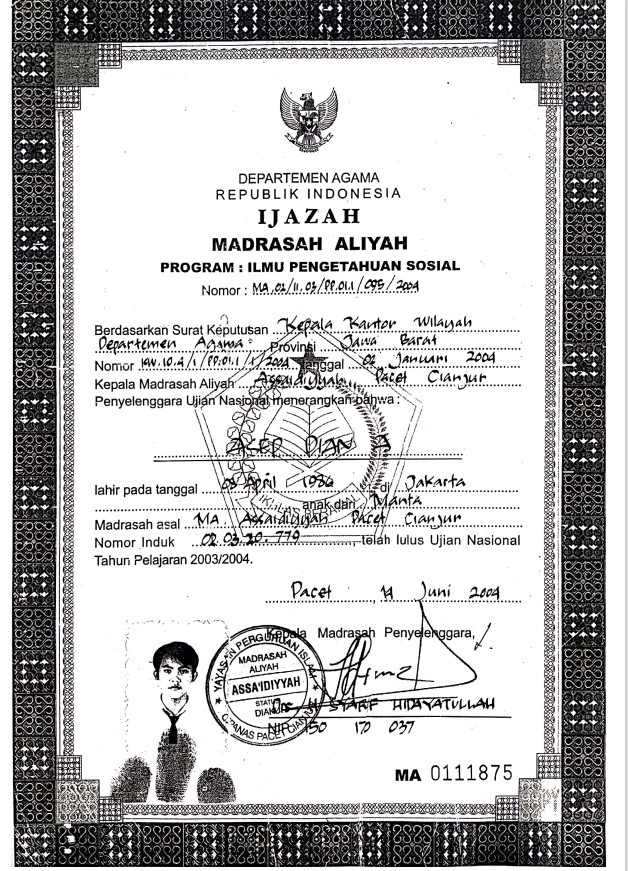 DEPARTEMEN AGAMA
REPUBLIK INDONESIA
IJAZAH
MADRASAH ALIYAH
PROGRAM : ILMU PENGETAHUAN SOSIAL
Nomor : MA.02/11.03/PP.01.1/095/2004
Berdasarkan Surat Keputusan Kepala Kantor Wilayah
Departemen Agama Provinsi Jawa Barat
Nomor KW.10.4/1/PP.01.1/1/2004 Tanggal 02 Januari 2004
Kepala Madrasah Aliyah Assaidiyyah Pacet Cianjur
Penyelenggara Ujian Nasional menerangkan bahwa :
ASEP DIAN A
lahir pada tanggal 08 April di Jakarta
anak dari Manta
Madrasah asal MA Assaidiyyah Pacet Cianjur
Nomor Induk 02.03.20.779, telah lulus Ujian Nasional
Tahun Pelajaran 2003/2004.
Pacet, 14 Juni 2004
Kepala Madrasah Penyelenggara,
YAYASAN PERGURUAN ISLAM
MADRASAH
ALIYAH
ASSA'IDIYYAH
STATUS
DIAKUI
CIPANAS PACET CIANJUR
SYARIF HIDAYATULLAH
NIP 150 170 037
MA 0111875